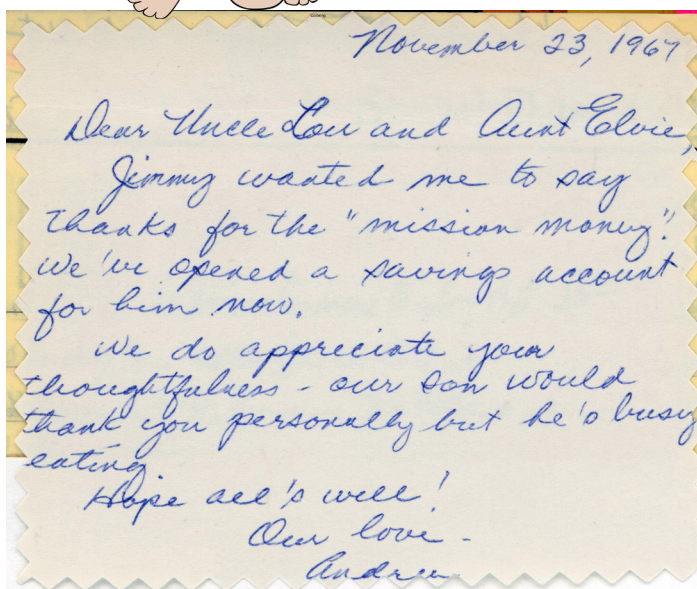 November 23, 1967
Dear Uncle Lou and Aunt Elvie,
Jimmy wanted me to say
thanks for the "mission money".
We've opened a savings account
for him now.
We do appreciate your
thoughtfulness - our son would
thank you personally but he's busy
eating
Hope all's well!
Our love -